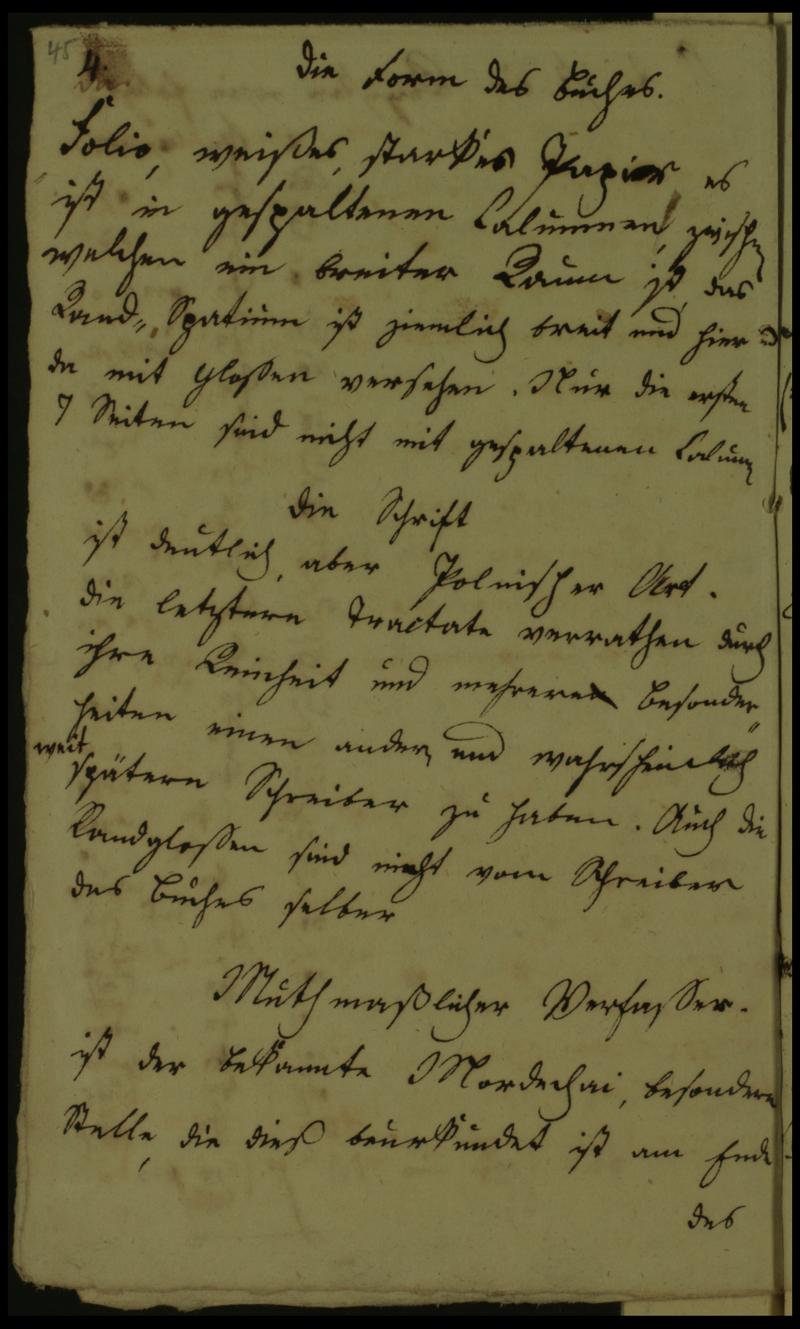 45
4. Die Form des Buches.
Folio, weißes, starkes Papier es
ist in gespaltenen Columnen, zwischen
welchen ein breiter Raum ist, das
Rand-Spatium ist ziemlich breit und hier und
da mit Glossen versehen. Nur die ersten
7 Seiten sind nicht mit gespaltenen Column
Die Schrift
ist deutlich, aber Polnischer Art.
Die letztern Tractate verrathen durch
ihre Reinheit und mehrere Besonder-
heiten einen andern und wahrscheinlich
weit
spätern Schreiber zu haben. Auch die
Randglossen sind nicht vom Schreiber
des Buches selber
Muthmaßlicher Verfasser.
ist der bekannte Mordechai, besondere
Stelle, die dieß beurkundet ist am Ende
des